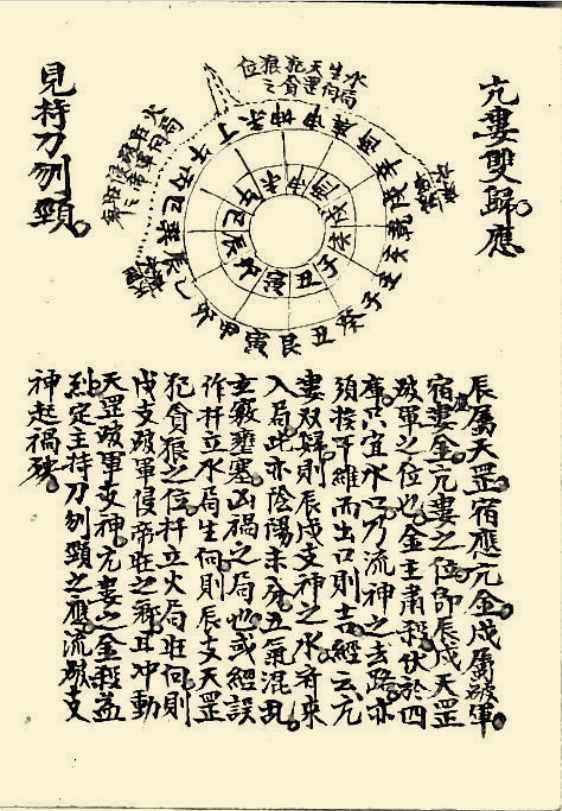 亢婁雙歸應
水局
生向
天罡
犯貪
狼之
位
火局旺向
破軍侵帝旺
壬子癸丑艮寅甲卯乙辰巽巳丙午丁未坤申庚酉辛戌乾亥
子丑寅卯辰巳午未申酉戌亥
見持刀刎頸
辰屬天罡宿應亢金戌屬破軍
宿應婁金亢婁之位即辰戌天罡
破軍之位也金主肅殺伏於四
庫只宜水口乃流神之去路亦
須接干維而出口則吉經云亢
婁双歸則辰戌支神之水齐來
入局此亦陰陽未分五氣混乱
玄竅壅塞凶禍之局也或經誤
作扦立水局生向則辰支天罡
犯貪狼之位扦立火局旺向則
戌支破軍侵帝旺之鄉互冲動
天罡破軍支神亢婁之金殺益
烈定主持刀刎頸之應流破支
神起禍殃